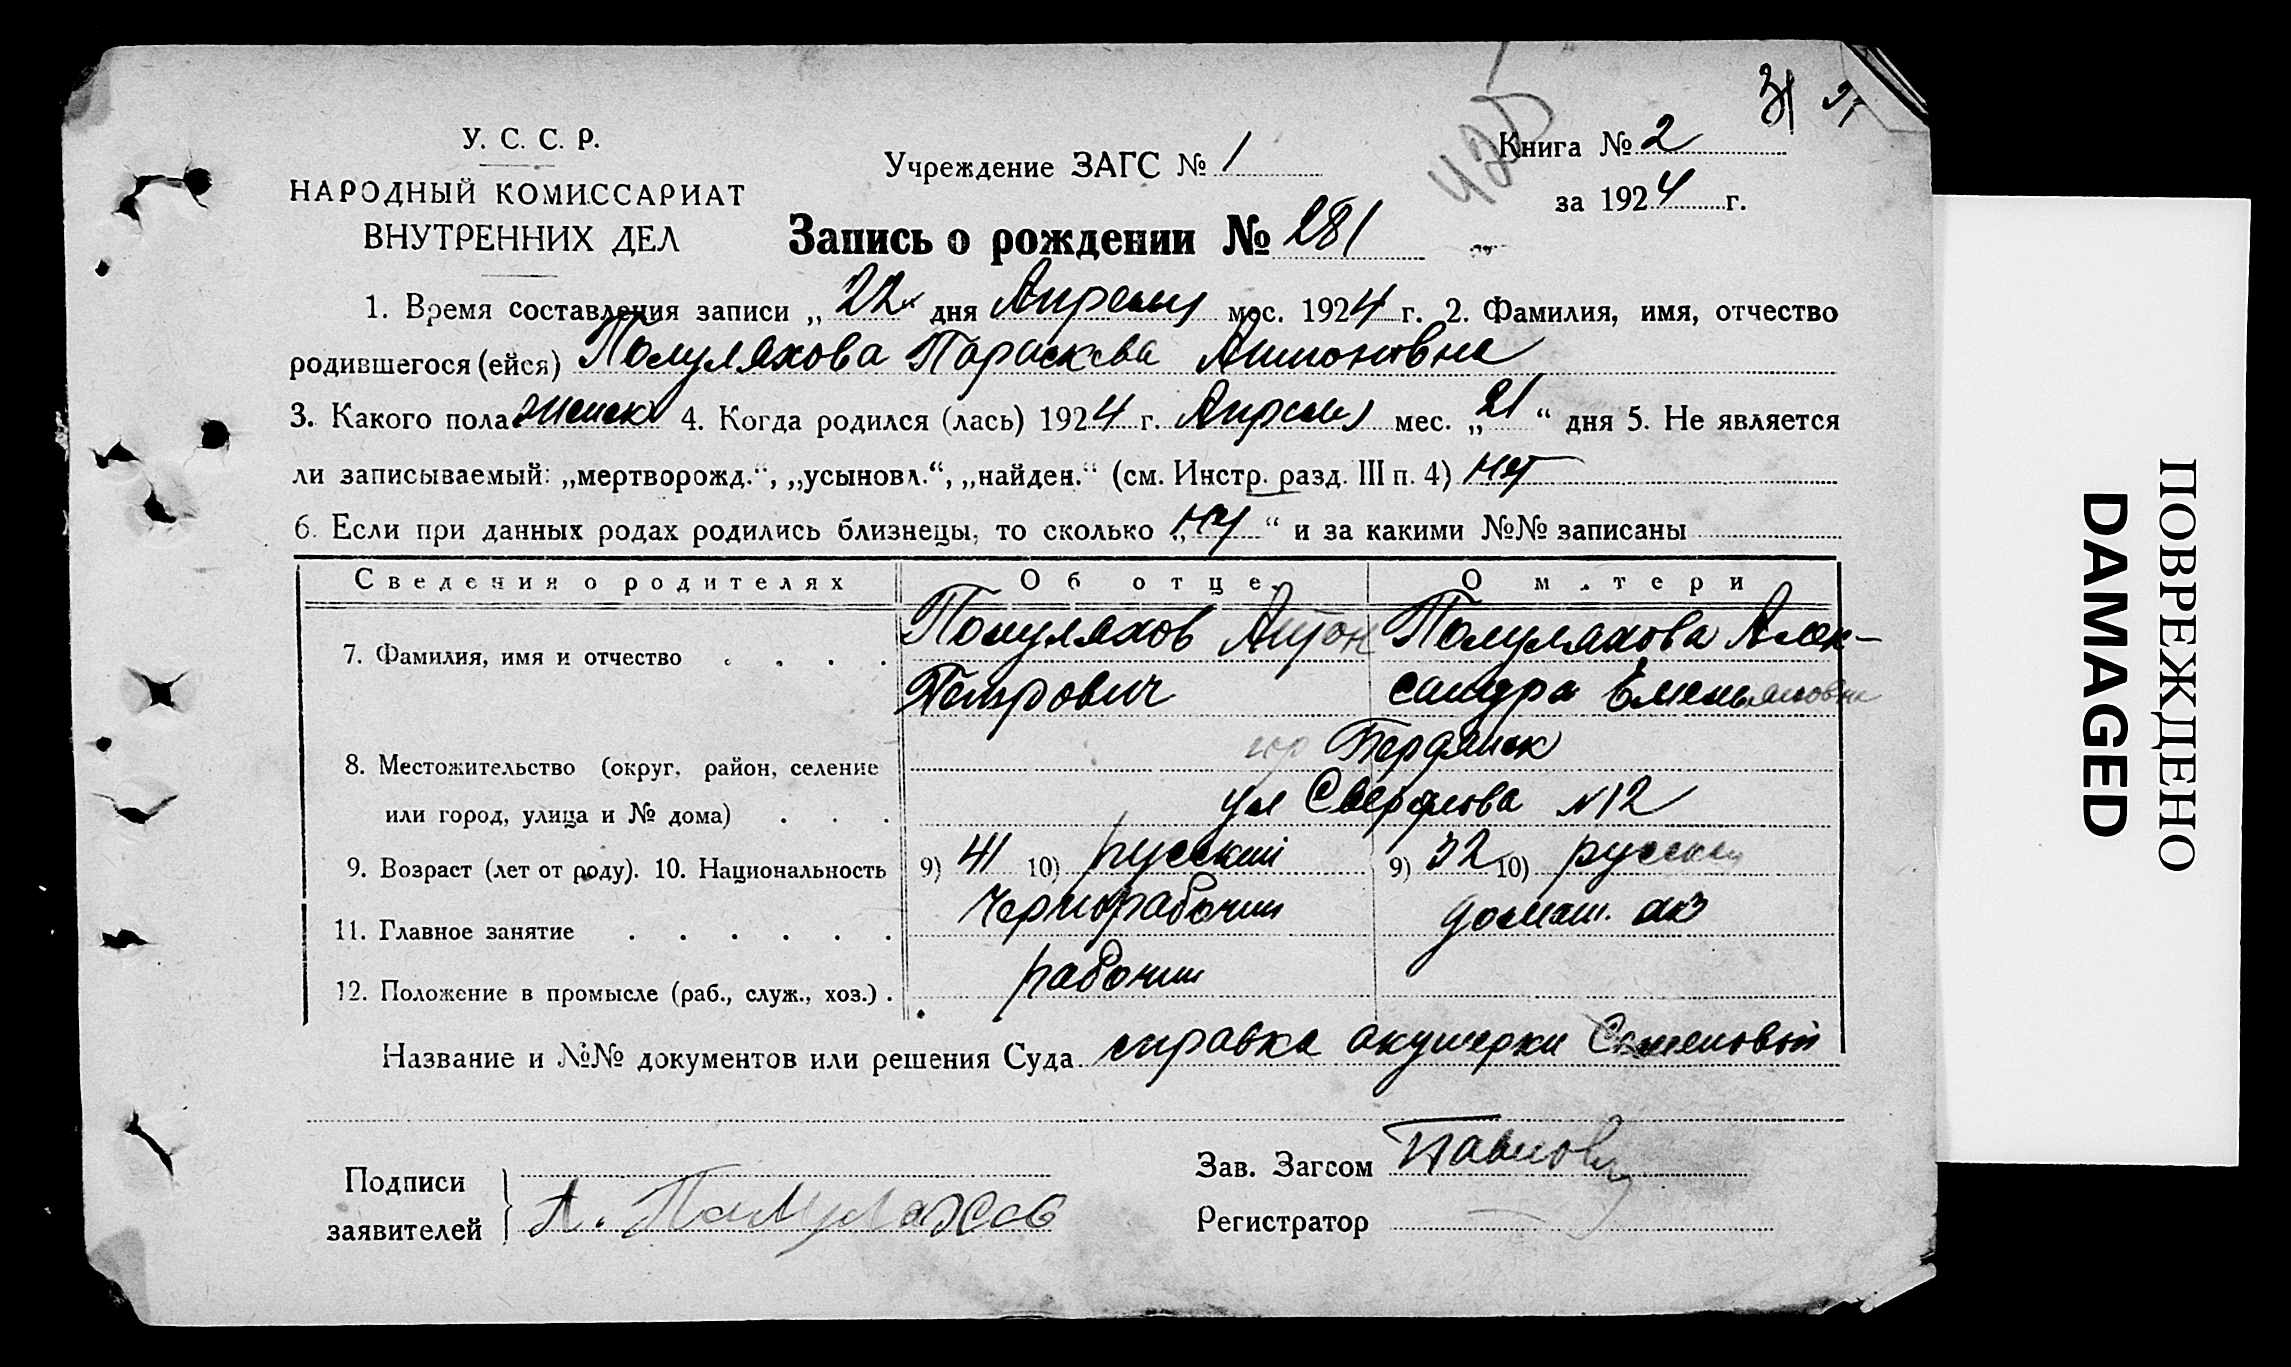 31
425
У. С. С. Р.
НАРОДНЫЙ КОМИССАРИАТ
ВНУТРЕННИХ ДЕЛ
Учреждение ЗАГС № 1
Книга № 2
за 1924 г.
Запись о рождении № 281
1. Время составления записи „ 22 дня Апреля мес. 1924 г. 2. Фамилия, имя, отчество
родившегося (ейся) Помуляхова Параскева Антоновна
3. Какого пола женск 4. Когда родился (лась) 1924 г. Апреля мес. „ 21 “ дня 5. Не является
ли записываемый: „мертворожд.“, „усыновл.“, „найден.“ (см. Инстр. разд. III п. 4) нет
6. Если при данных родах родились близнецы, то сколько „ нет “ и за какими №№ записаны
Сведения о родителях Об отце О м.тери
7. Фамилия, имя и отчество . . . . Помуляхов Антон Помуляхова Алек-
Петрович сандра Емельяновна
8. Местожительство (округ, район, селение гор Бердянск
или город, улица и № дома) . . . ул Свердлова N 12
9. Возраст (лет от роду). 10. Национальность 9) 41 10) русский 9) 32 10) русская
11. Главное занятие . . . . . . Чернорабочий домаш. хоз
12. Положение в промысле (раб., служ., хоз.) . рабочий
Название и №№ документов или решения Суда справка акушерки Семеновой
Подписи
заявителей } А. Помуляхов
Зав. Загсом Павлов
Регистратор
ПОВРЕЖДЕНО
DAMAGED